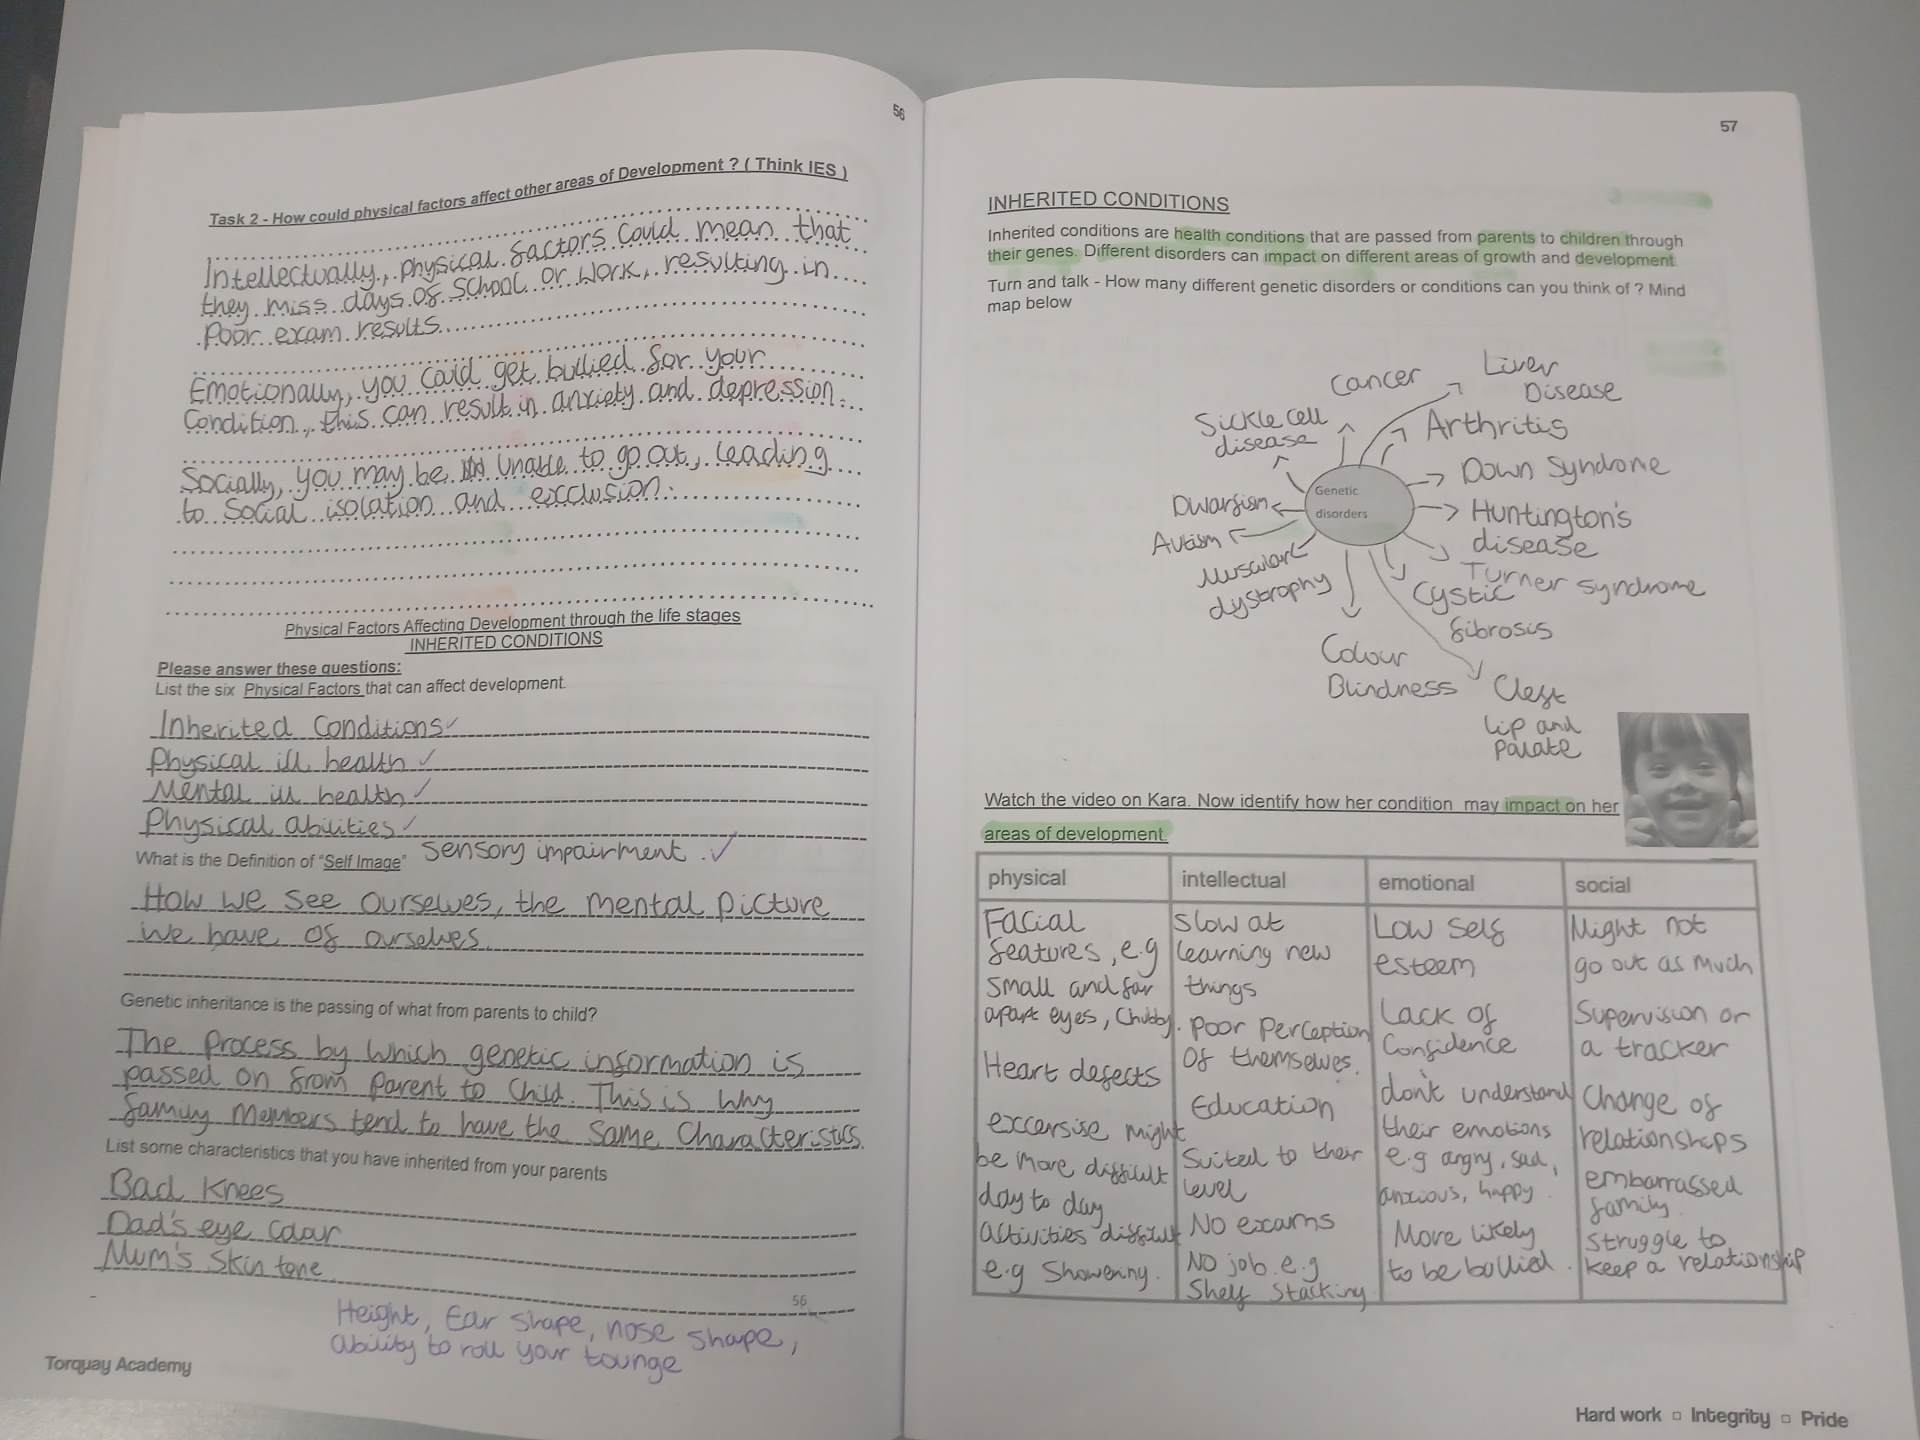 56
Task 2 - How could physical factors affect other areas of Development ? ( Think IES )
Intellectually, physical factors could mean that
they miss days of school or work, resulting in
poor exam results
Emotionally, you could get bullied for your
condition, this can result in anxiety and depression.
Socially, you may be unable to go out, leading
to social isolation and exclusion.
Physical Factors Affecting Development through the life stages
INHERITED CONDITIONS
Please answer these questions:
List the six Physical Factors that can affect development.
Inherited Conditions ✓
Physical ill health ✓
Mental ill health ✓
Physical abilities ✓
Sensory impairment. ✓
What is the Definition of "Self Image"
How we see ourselves, the mental picture
we have of ourselves
Genetic inheritance is the passing of what from parents to child?
The process by which genetic information is
passed on from parent to child. This is why
family members tend to have the same characteristics.
List some characteristics that you have inherited from your parents
Bad knees
Dad's eye colour
Mum's skin tone
56
Height, Ear shape, nose shape,
ability to roll your tounge
Torquay Academy
57
INHERITED CONDITIONS
Inherited conditions are health conditions that are passed from parents to children through
their genes. Different disorders can impact on different areas of growth and development.
Turn and talk - How many different genetic disorders or conditions can you think of ? Mind
map below
Genetic
disorders
Cancer
Liver
Disease
Sickle cell
disease
Arthritis
Down Syndrome
Dwarfism
Huntington's
disease
Autism
Muscular
dystrophy
Turner syndrome
Cystic
fibrosis
Colour
Blindness
Cleft
lip and
palate
Watch the video on Kara. Now identify how her condition may impact on her
areas of development.
physical
Facial
features, e.g
small and far
apart eyes, chubby.
Heart defects
excersise might
be more difficult
day to day
activities difficult
e.g showering.
intellectual
Slow at
learning new
things
Poor perception
of themselves.
Education
suited to their
level
No exams
No job e.g
shelf stacking
emotional
Low self
esteem
Lack of
confidence
don't understand
their emotions
e.g angry, sad,
anxious, happy.
More likely
to be bullied.
social
Might not
go out as much
Supervision or
a tracker
Change of
relationships
embarrassed
family.
struggle to
keep a relationship
Hard work ▫ Integrity ▫ Pride